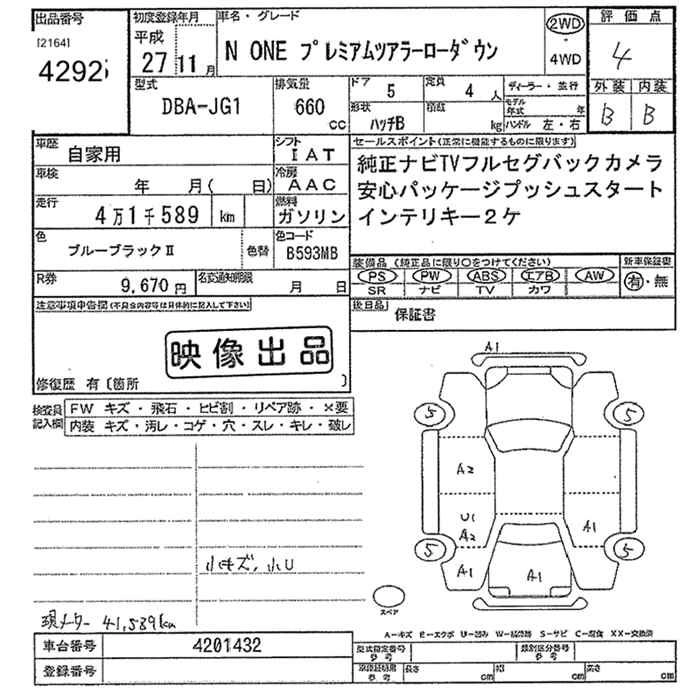 出品番号
[2164]
4292
初度登録年月
平成
27 11 月
車名・グレード
N ONE プレミアムツアラーローダウン
2WD
・
4WD
評価点
4
外装 内装
B B
型式
DBA-JG1
排気量
660
CC
ドア
5
定員
4 人
形状
ハッチB
積載
kg
ディーラー・並行
モデル
年式 年
ハンドル 左・右
車歴
自家用
シフト
IAT
車検
年 月( 日)
冷房
AAC
走行
4万1千589 km
燃料
ガソリン
色
ブルーブラックⅡ
色替
色コード
B593MB
R券
9,670円
名変通知期限
月 日
セールスポイント(正常に機能するものに限ります)
純正ナビTVフルセグバックカメラ
安心パッケージプッシュスタート
インテリキー2ケ
装備品 (純正品に限り○をつけてください)
PS PW ABS エアB AW
SR ナビ TV カワ
新車保証書
有・無
後日品
保証書
注意事項申告欄(不具合内容等は具体的に記入して下さい)
映像出品
修復歴 有〔箇所 〕
検査員
記入欄
FW キズ・飛石・ヒビ割・リペア跡・×要
内装 キズ・汚レ・コゲ・穴・スレ・キレ・破レ
小キズ,小U
現メーター 41,589km
A1
5
5
A2
U1
A2
A1
5
5
A1
A1
スペア
A-キズ E-エクボ U-凹み W-補修跡 S-サビ C-腐食 XX-交換済
車台番号
4201432
登録番号
型式指定番号
参考
類別区分番号
参考
車検証明書
参考
長さ cm
幅 cm
高さ cm